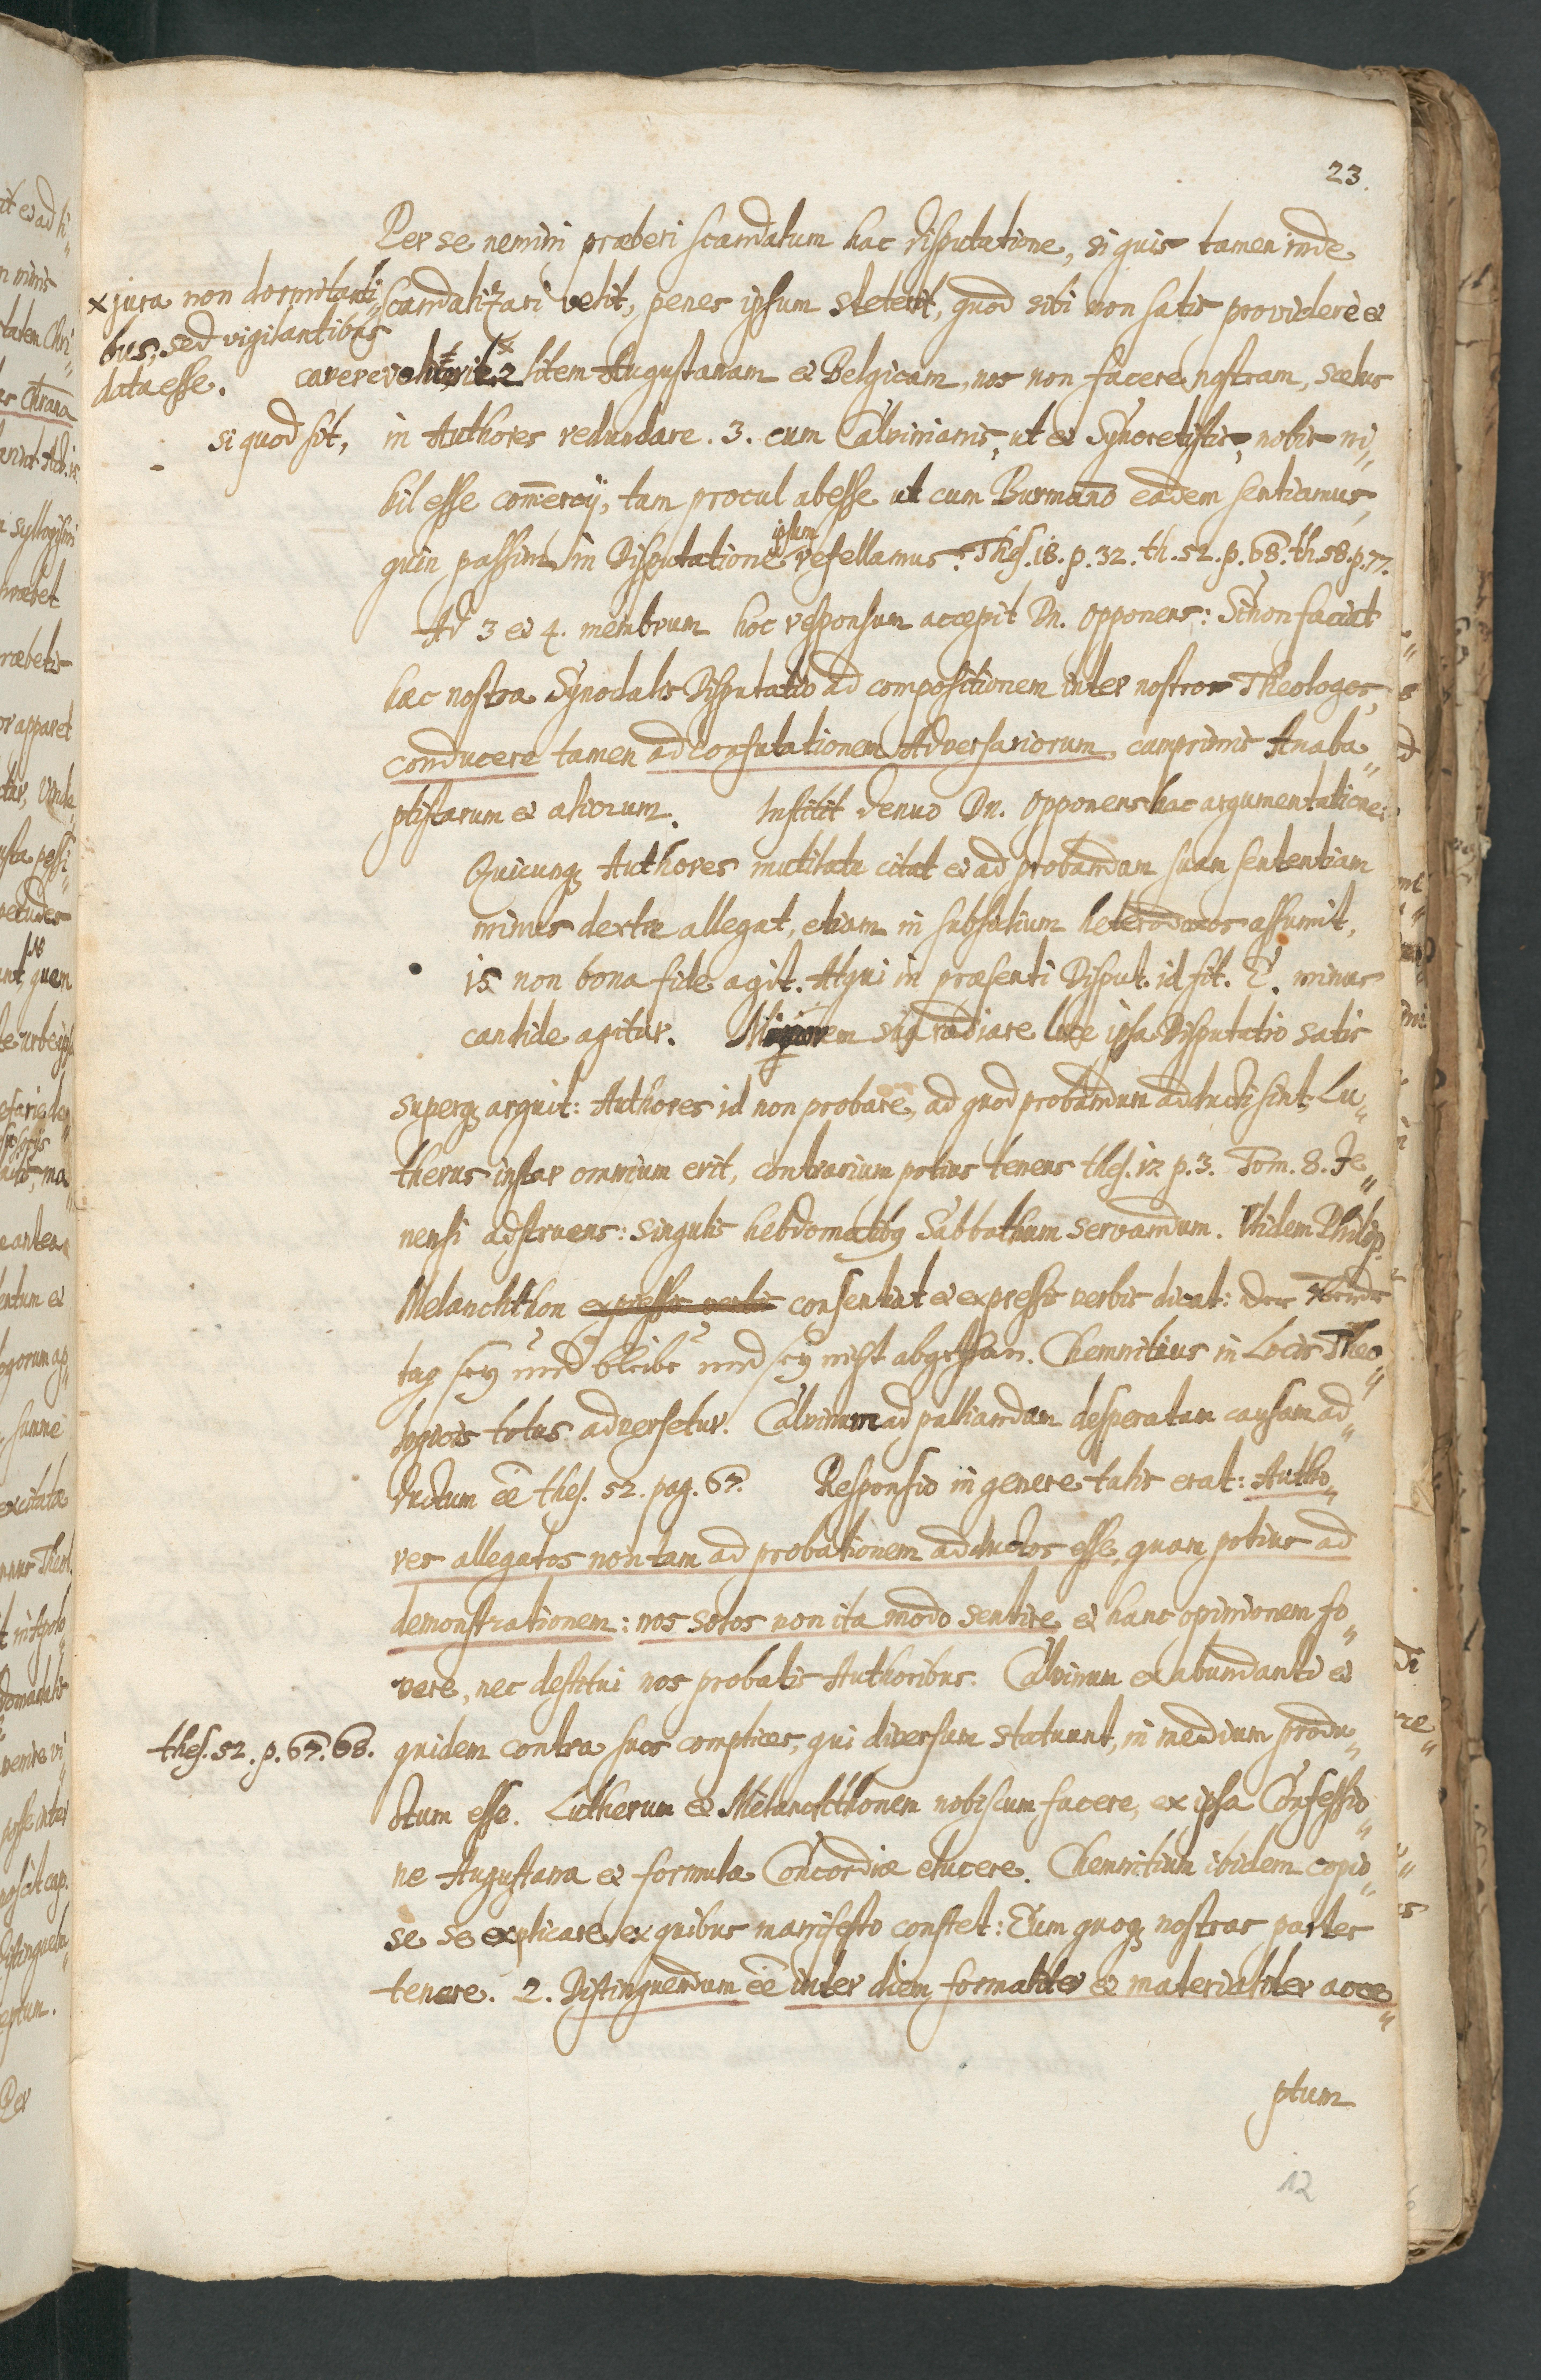 23.
Per se nemini præberi scandalum hac disputatione, si quis tamen inde
x jura non dormitanti„
bus, sed vigilantibus
data esse.
scandalizari velit, penes ipsum steterit, quod sibi non satis providere &
cavere voluerit. 2 litem Augustanam & Belgicam, nos non facere nostram, scelus
si quod sit, in Authores redundare. 3. cum Calvinianis, ut & Syncretistis, nobis ni„
hil esse com̄ercij, tam procul abesse ut cum Burmano eadem sentiamus,
quin passim in Disputatione ipsum refellamus. Thes. 18. p. 32. th. 52. p. 68. th. 58. p. 77.
Ad 3 & 4. membrum hoc responsum accepit Dn. Opponens: Si non faciat
hac nostra Synodalis Disputatio ad compositionem inter nostros Theologos,
conducere tamen ad confutationem Adversariorum cumprimis Anaba„
ptistarum & aliorum. Institit denuo Dn. Opponens hac argumentatione:
Quicunq; Authores mutilate citat & ad probandam suam sententiam
minus dextre allegat, etiam in subsidium heterodoxos assumit,
is non bona fide agit. Atqui in præsenti Disput. id fit. E. minus
candide agitur. Minorem sua radiare luce ipsa Disputatio satis
superq; arguit: Authores id non probare, ad quod probandum adducti sint, Lu„
therus instar omnium erit, contrarium potius tenens thes. 12 p. 3. Tom. 8. Je„
nensi adstruens: singulis hebdomatibq Sabbathum servandum. Itidem Philip.
Melanchthon expressis verbis consentiat & expressis verbis dicat: der
tag sey und bleibe und sey nicht abgethan. Chemnitius in Locis Theo„
logicis totus adversetur. Calvinum ad palliandam desperatam causam ad„
ductum eē thes. 52. pag. 67. Responsio in genere talis erat: Autho„
res allegatos non tam ad probationem adductos esse, quam potius ad
demonstrationem: nos solos non ita modo sentire & hanc opinionem fo„
vere, nec destitui nos probatis Authoribus. Calvinum ex abundanti &
thes. 52. p. 67. 68.
quidem contra suos complices, qui diversum statuunt, in medium produ„
ctum esse. Lutherum & Melanchthonem nobiscum facere, ex ipsa Confessio„
ne Augustana & formula Concordiæ elucere. Chemnitium ibidem copio„
se se explicare, ex quibus manifesto constet: Eum quoq; nostras partes
tenere. 2. Distinguendum eē inter diem formaliter & materialiter acce„
ptum
12